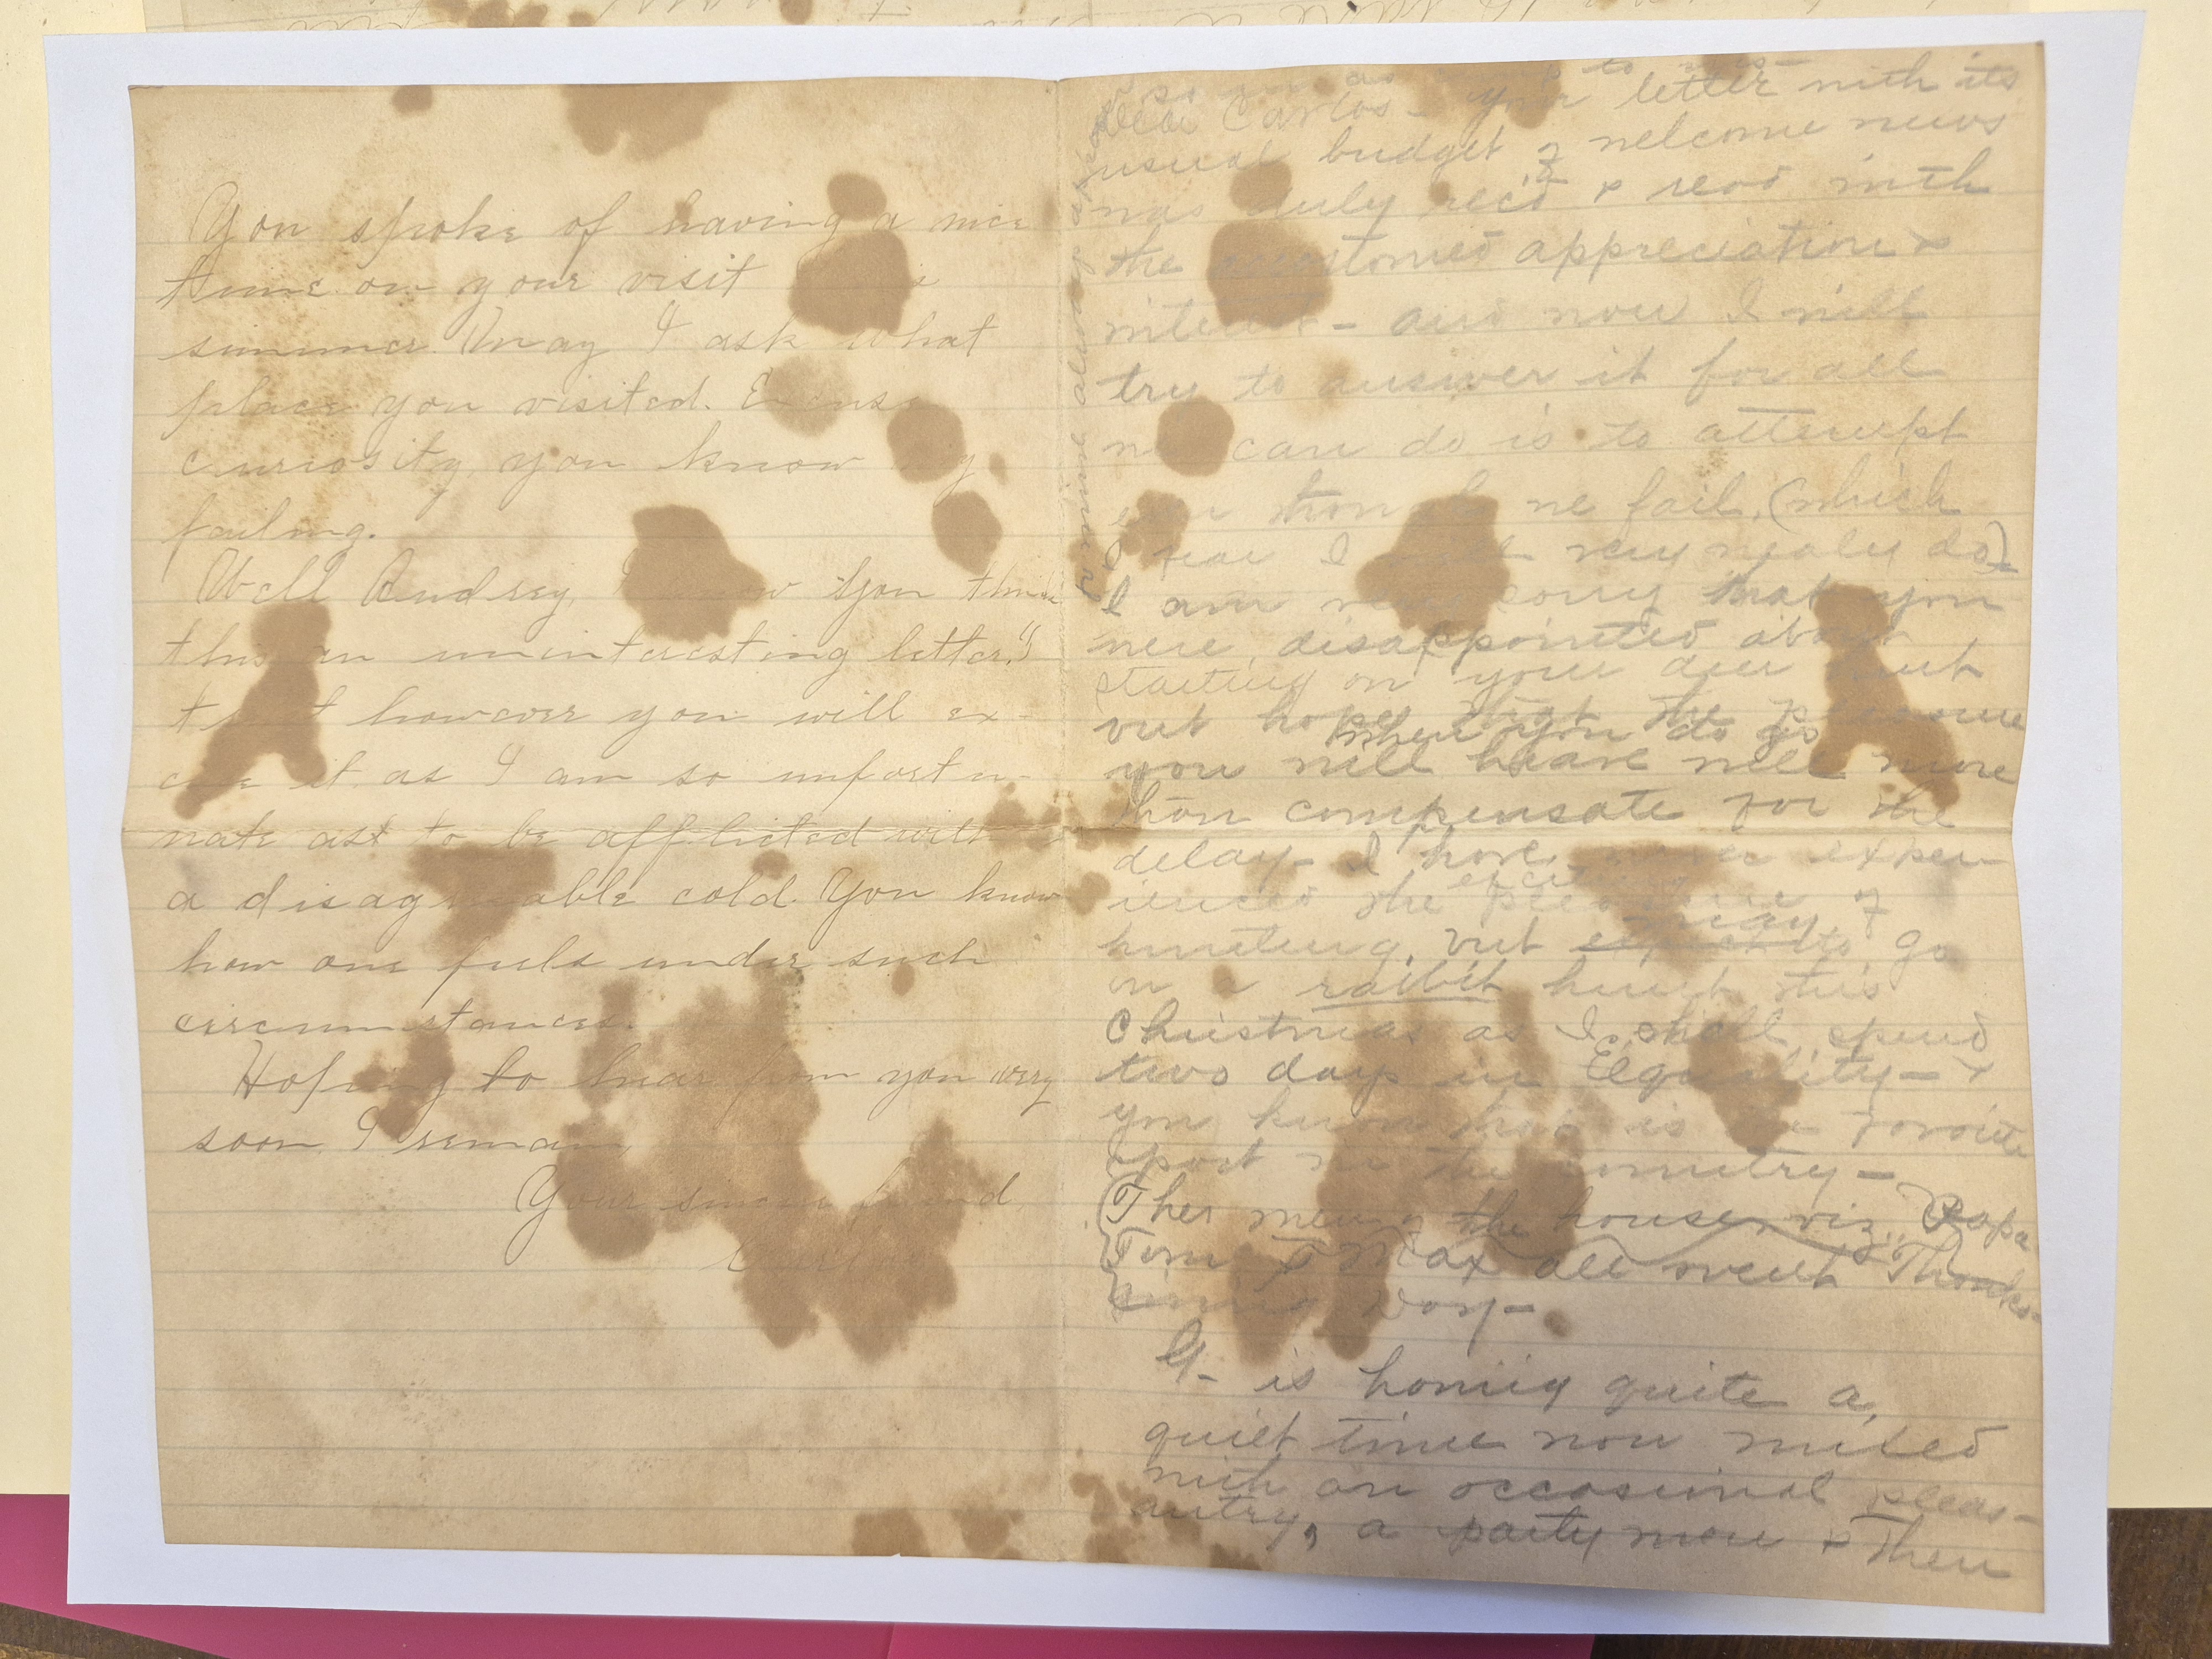 You spoke of having a nice
time on your visit
summer. May I ask what
place you visited. Excuse
curiosity, you know my
failing.
Well Audrey, I know you think
this an uninteresting letter. I
trust however you will ex-
cuse it as I am so unfortu-
nate as to be afflicted with
a disagreeable cold. You know
how one feels under such
circumstances.
Hoping to hear from you very
soon, I remain,
Your sincere friend,
Dear Carlos - Your letter with its
usual budget of welcome news
was duly rec'd & read with
the accustomed appreciation &
interest - and now I will
try to answer it for all
we can do is to attempt
even though we fail, (which
I fear I will very nealy do)
I am very sorry that you
were disappointed about
starting on your deer hunt
but hope that the pleasure
when you do go
you will have will more
than compensate for the
delay - I have never exper-
ienced the exciting pleasure of
hunting, but expect to may go
on a rabbit hunt this
Christmas as I shall spend
two days in Equality - &
you know that is a favorite
sport in the country -
(The men of the house, viz., Papa
Tom & Max all went Thanks-
giving Day -
G - is having quite a
quiet time now mixed
with an occasional pleas-
antry, a party now & then